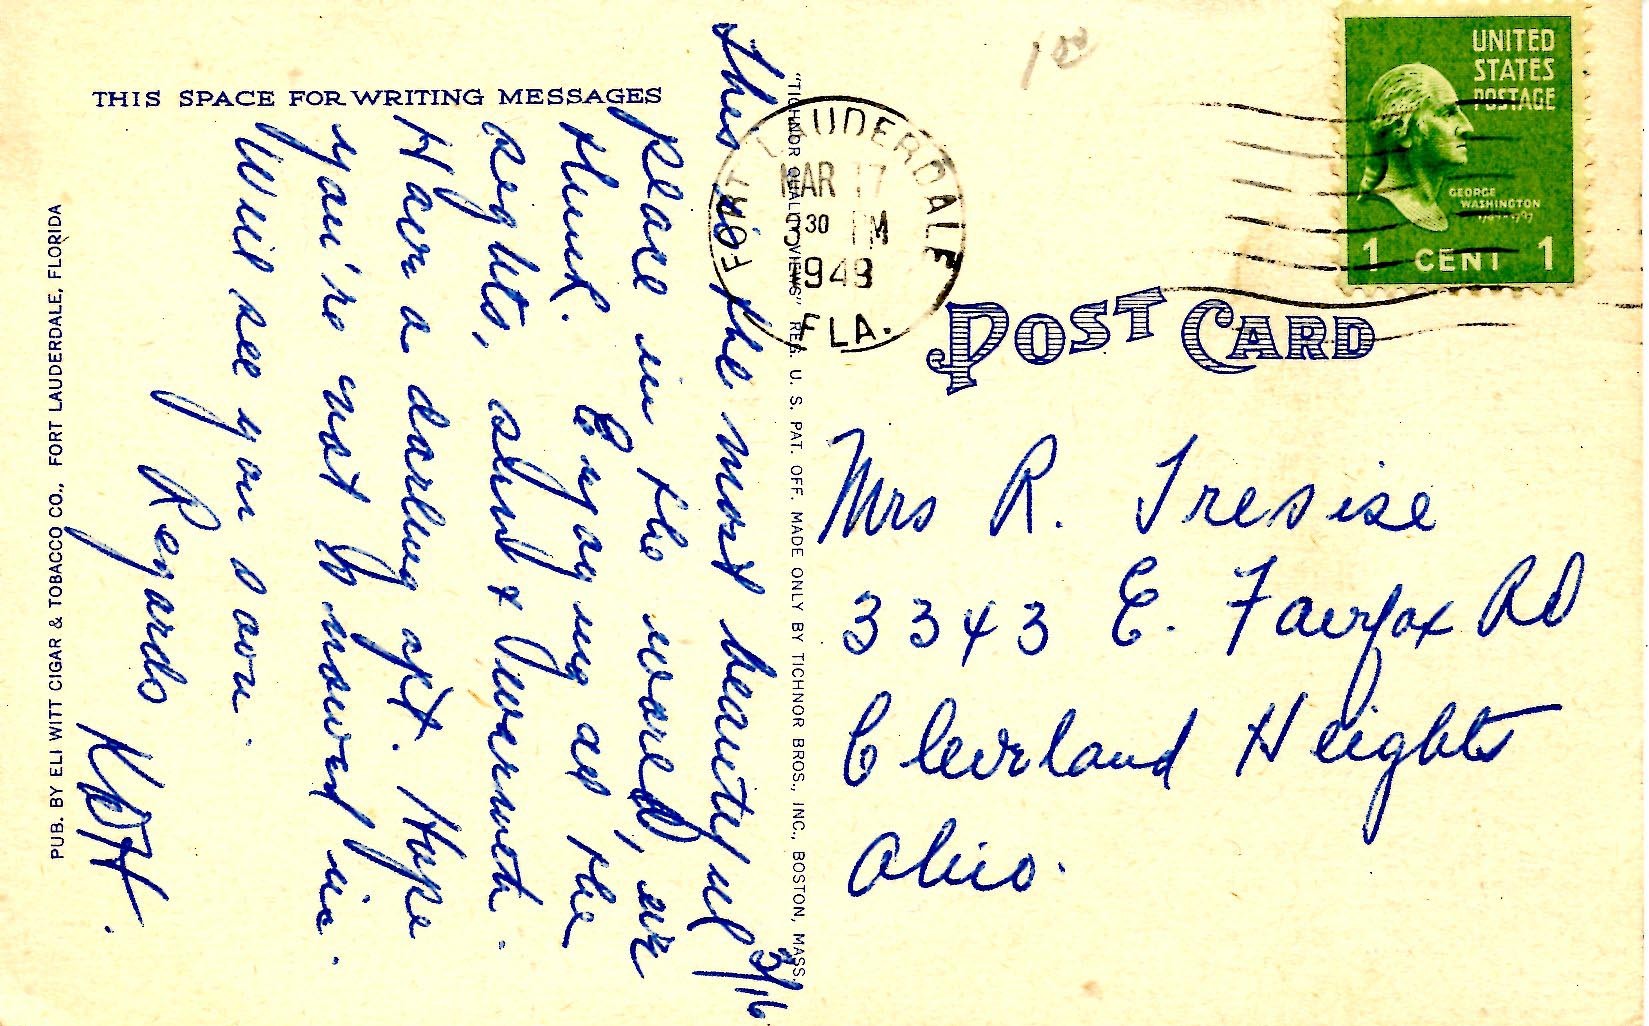 THIS SPACE FOR WRITING MESSAGES
3/16
This is the most beautiful
place in the world, we
think. Enjoying all the
sights, slint & Iverneth.
Have a darling apt. Hope
you're not to snowed in.
Will see you soon.
Regards
KDH.
PUB. BY ELI WITT CIGAR & TOBACCO CO., FORT LAUDERDALE, FLORIDA
"TICHNOR QUALITY VIEWS" REG. U. S. PAT. OFF. MADE ONLY BY TICHNOR BROS., INC., BOSTON, MASS.
FORT LAUDERDALE
MAR 17
3 30 PM
1949
FLA.
100
UNITED
STATES
POSTAGE
GEORGE
WASHINGTON
1789-1797
1 CENT 1
POST CARD
Mrs R. Tresise
3343 E. Fairfax Rd
Cleveland Heights
Ohio.